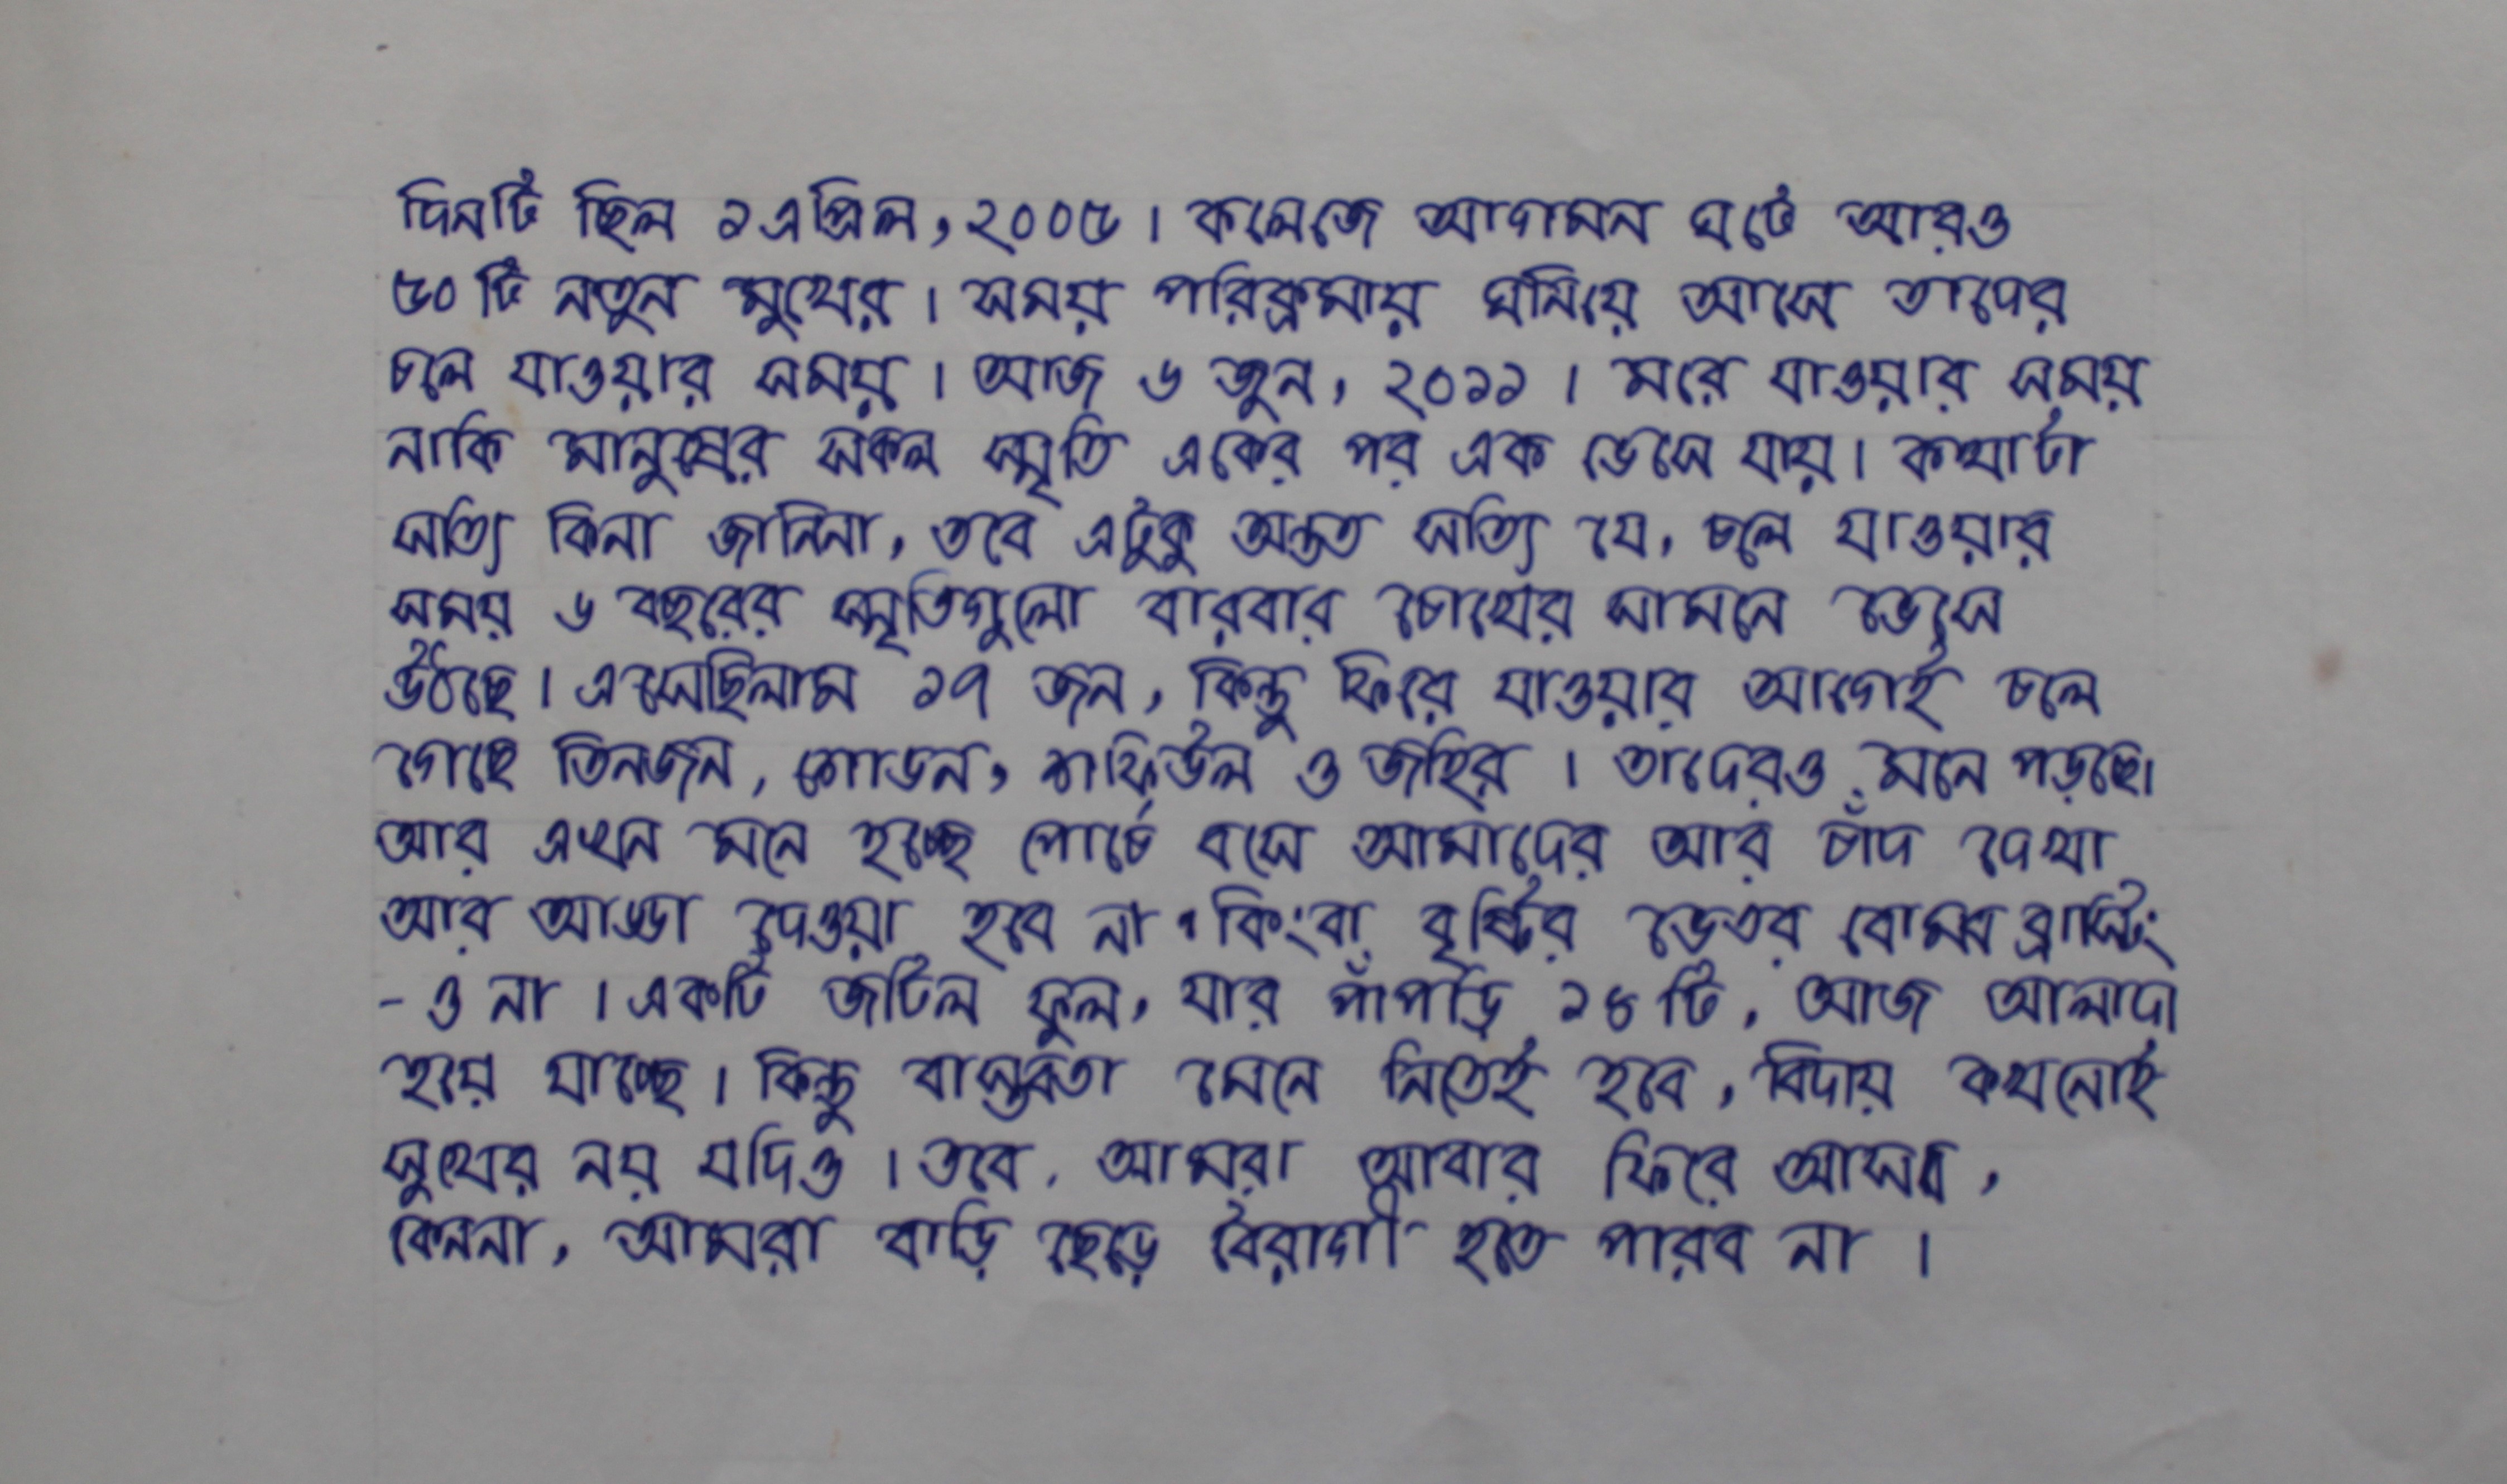 দিনটি ছিল ১ এপ্রিল, ২০০৫। কলেজে আগমন ঘটে আরও
৫০ টি নতুন মুখের। সময় পরিক্রমায় ঘনিয়ে আসে তাদের
চলে যাওয়ার সময়। আজ ৬ জুন, ২০১১। মরে যাওয়ার সময়
নাকি মানুষের সকল স্মৃতি একের পর এক ভেসে যায়। কথাটা
সত্যি কিনা জানিনা, তবে এটুকু অন্তত সত্যি যে, চলে যাওয়ার
সময় ৬ বছরের স্মৃতিগুলো বারবার চোখের সামনে ভেসে
উঠছে। এসেছিলাম ১৭ জন, কিন্তু ফিরে যাওয়ার আগেই চলে
গেছে তিনজন, শোভন, শাফিউল ও জহির। তাদেরও মনে পড়ছে।
আর এখন মনে হচ্ছে পোর্চে বসে আমাদের আর চাঁদ দেখা
আর আড্ডা দেওয়া হবে না। কিংবা বৃষ্টির ভেতর বোম্ব ব্লাস্টিং
-ও না। একটি জটিল ফুল, যার পাঁপড়ি ১৪ টি, আজ আলাদা
হয়ে যাচ্ছে। কিন্তু বাস্তবতা মেনে নিতেই হবে, বিদায় কখনোই
সুখের নয় যদিও। তবে, আমরা আবার ফিরে আসব,
কেননা, আমরা বাড়ি ছেড়ে বৈরাগী হতে পারব না।